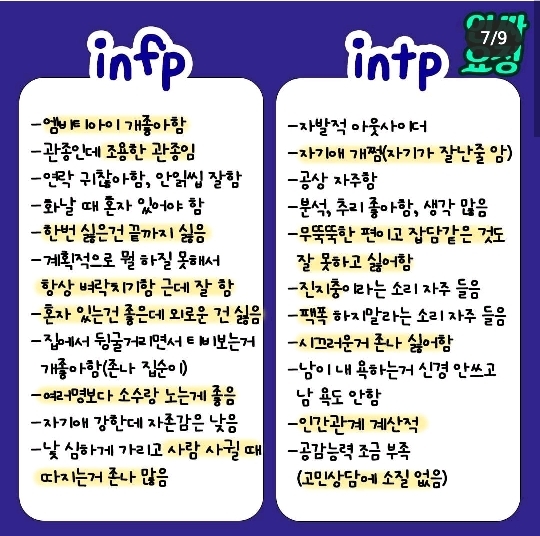 7/9
infp
-엠비티아이 개좋아함
-관종인데 조용한 관종임
-연락 귀찮아함, 안읽씹 잘함
-화날 때 혼자 있어야 함
-한번 싫은건 끝까지 싫음
-계획적으로 뭘 하질 못해서
항상 벼락치기함 근데 잘 함
-혼자 있는건 좋은데 외로운 건 싫음
-집에서 뒹굴거리면서 티비보는거
개좋아함(존나 집순이)
-여러명보다 소수랑 노는게 좋음
-자기애 강한데 자존감은 낮음
-낯 심하게 가리고 사람 사귈 때
따지는거 존나 많음
intp
-자발적 아웃사이더
-자기애 개쩜(자기가 잘난줄 암)
-공상 자주함
-분석, 추리 좋아함, 생각 많음
-무뚝뚝한 편이고 잡담같은 것도
잘 못하고 싫어함
-진지충이라는 소리 자주 들음
-팩폭 하지말라는 소리 자주 들음
-시끄러운거 존나 싫어함
-남이 내 욕하는거 신경 안쓰고
남 욕도 안함
-인간관계 계산적
-공감능력 조금 부족
(고민상담에 소질 없음)